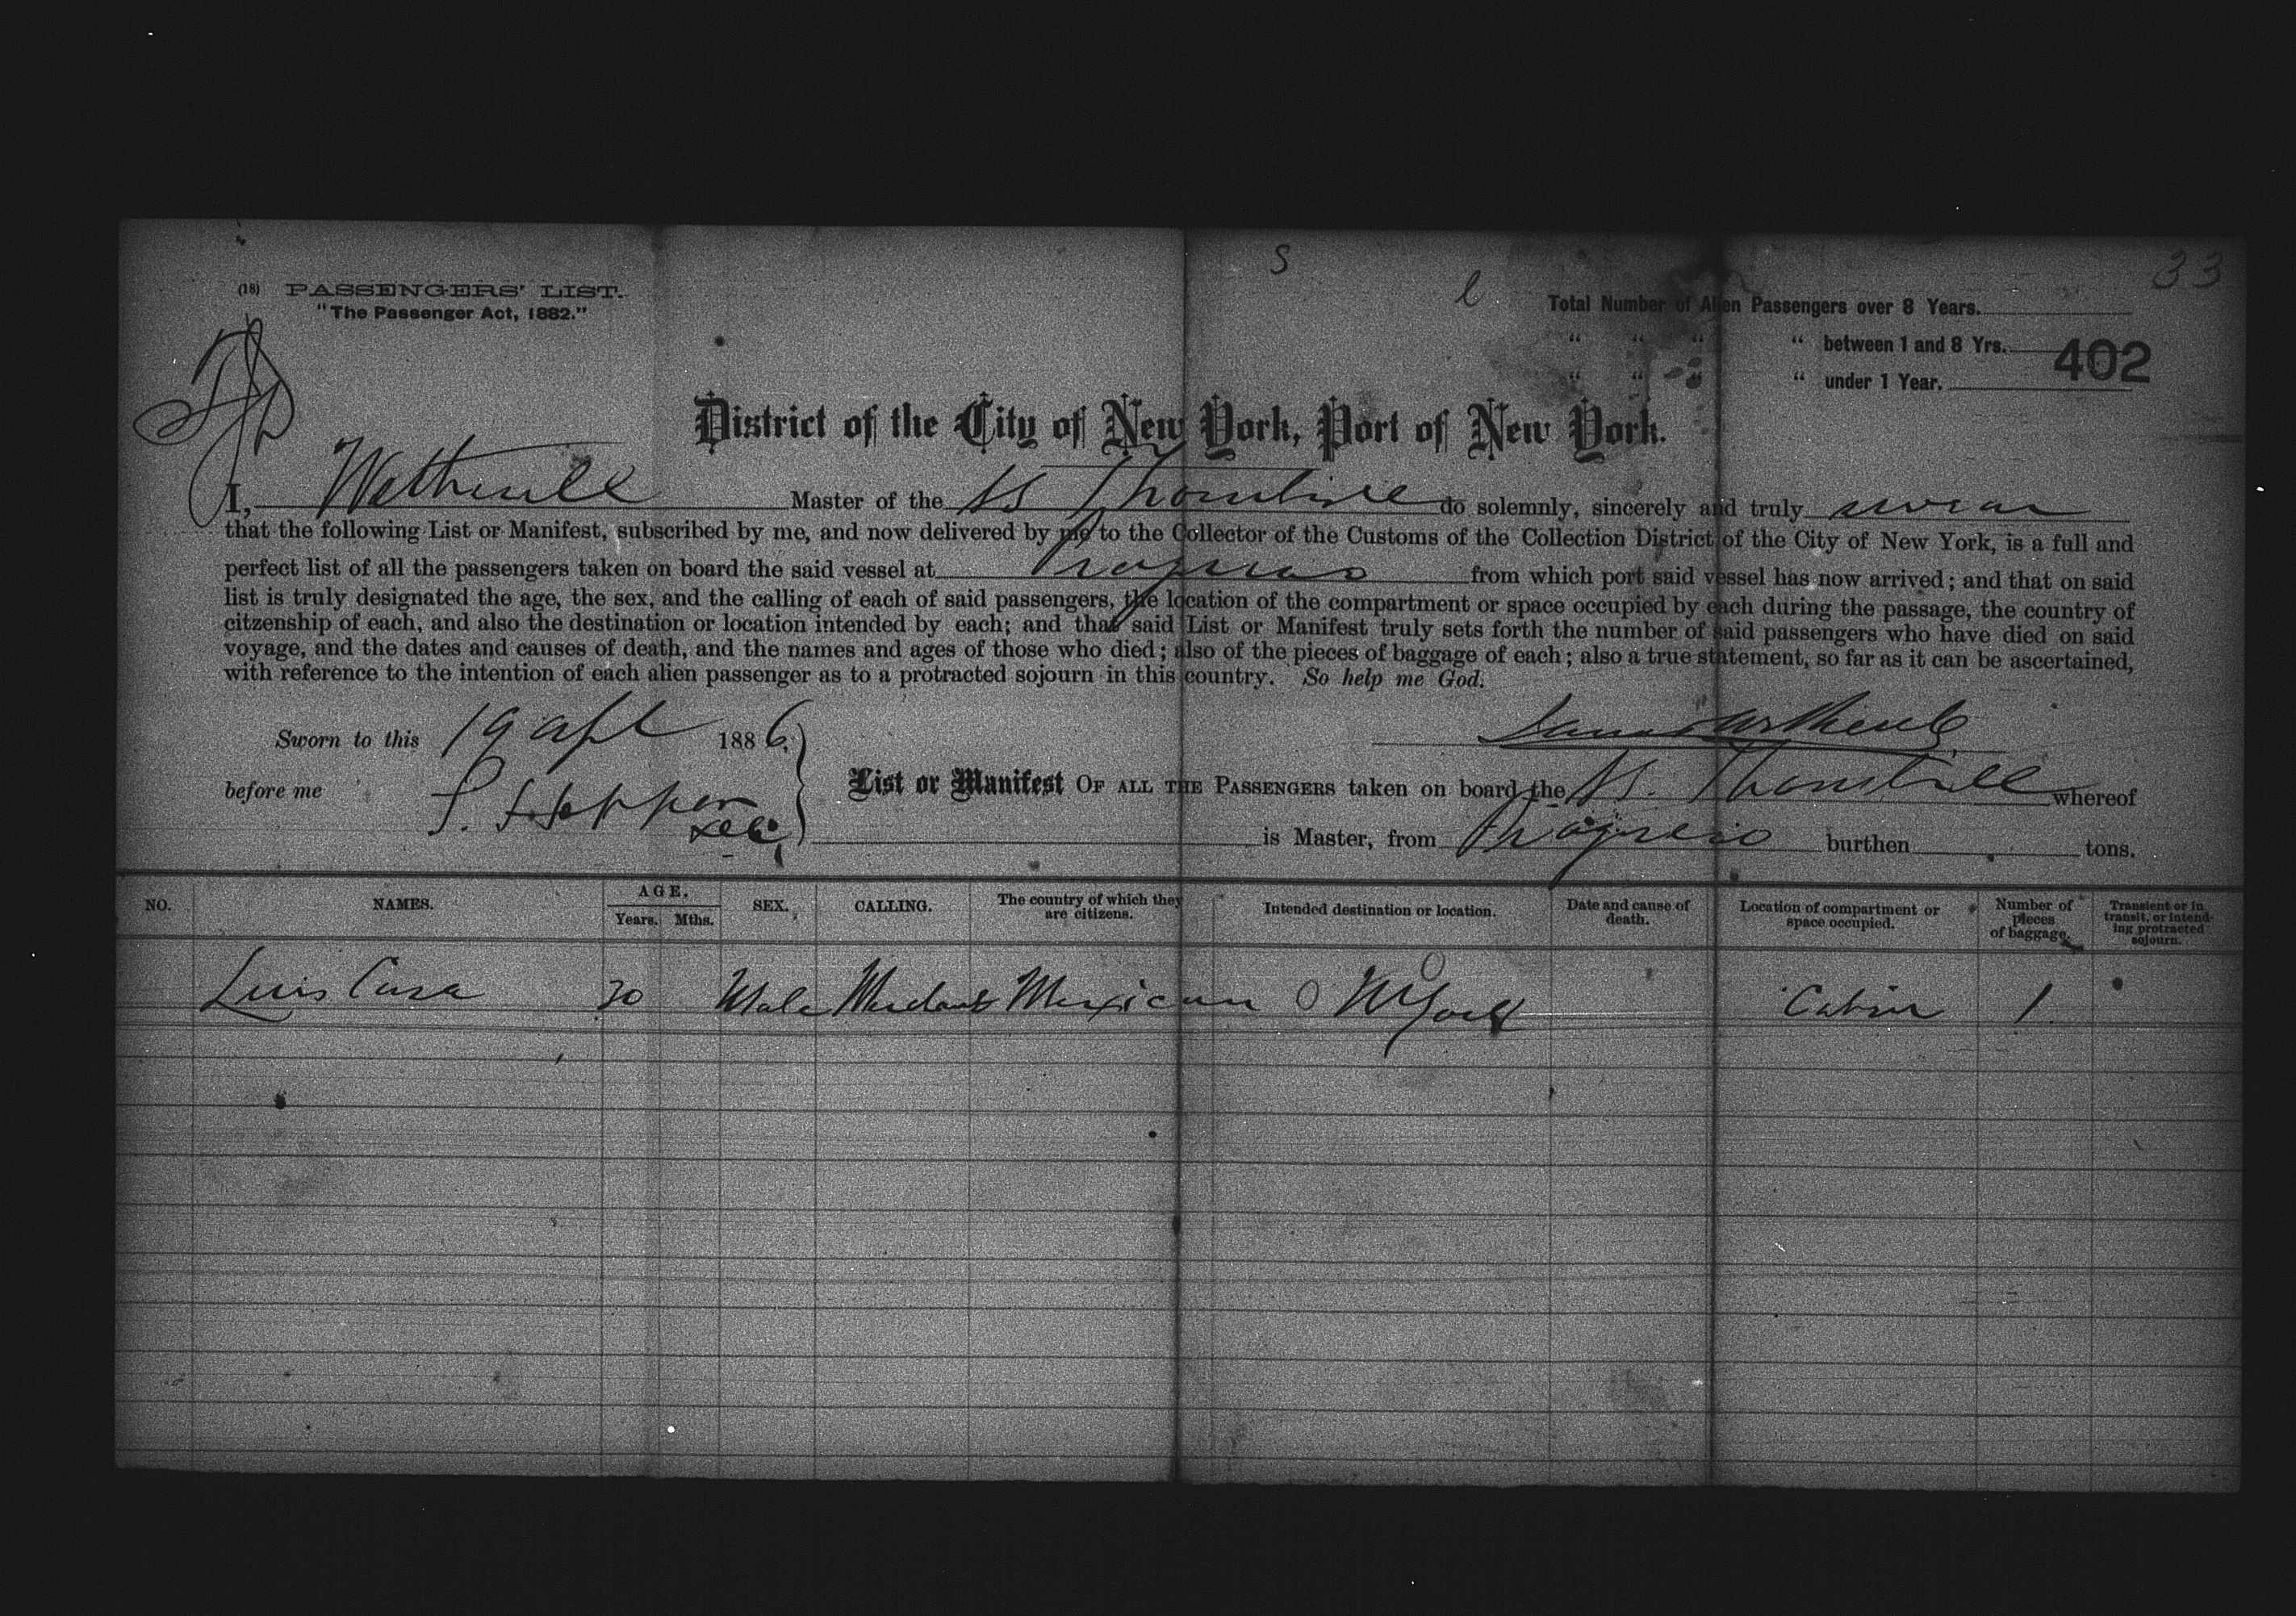 S
33
(18) PASSENGERS' LIST.
"The Passenger Act, 1882."
Total Number of Alien Passengers over 8 Years.
" " " " between 1 and 8 Yrs.
402
" " " " under 1 Year.
District of the City of New York, Port of New York.
I, Master of the SS Thornhill do solemnly, sincerely and truly swear
that the following List or Manifest, subscribed by me, and now delivered by me to the Collector of the Customs of the Collection District of the City of New York, is a full and
perfect list of all the passengers taken on board the said vessel at Progreso from which port said vessel has now arrived; and that on said
list is truly designated the age, the sex, and the calling of each of said passengers, the location of the compartment or space occupied by each during the passage, the country of
citzenship of each, and also the destination or location intended by each; and that said List or Manifest truly sets forth the number of said passengers who have died on said
voyage, and the dates and causes of death, and the names and ages of those who died; also of the pieces of baggage of each; also a true statement, so far as it can be ascertained,
with reference to the intention of each alien passenger as to a protracted sojourn in this country. So help me God.
Sworn to this 19 Apl 1886.
before me
List or Manifest OF ALL THE PASSENGERS taken on board the SS. Thornhill whereof
is Master, from Progreso burthen tons.
NO. NAMES. AGE. Years. Mths. SEX. CALLING. The country of which they are citizens. Intended destination or location. Date and cause of death. Location of compartment or space occupied. Number of pieces of baggage. Transient or in transit, or intending protracted sojourn.
Luis 30 Male Merchant Mexican N York Cabin 1